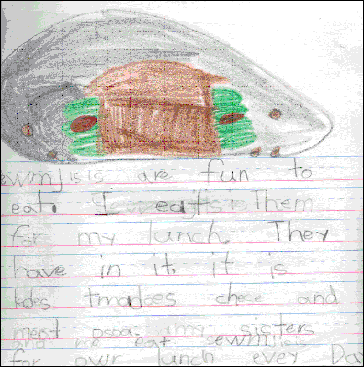 sewmjisis are fun to
eat. I eat Them
for my lunch. They
have in it. it is
tmadoes chece and
meast my sisters
and me eat sewmjisis
for owr lunch evey Day